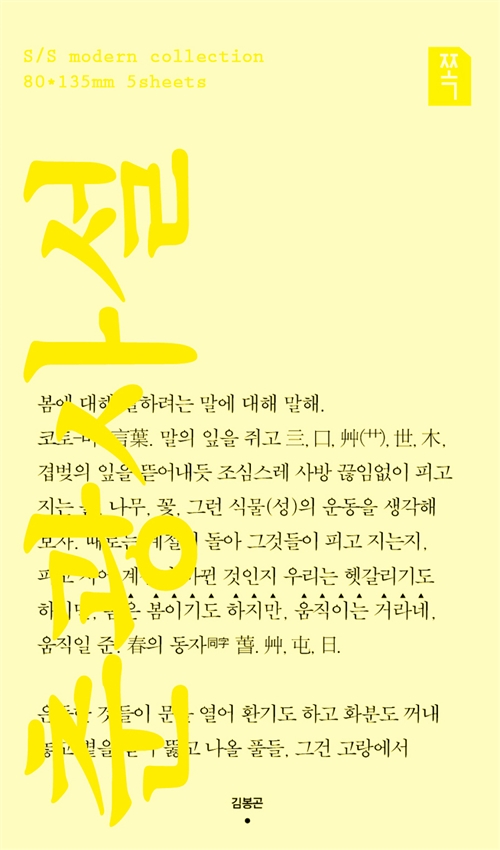 S/S modern collection
80*135mm 5sheets
쪽
춘광사설
봄에 대해 말하려는 말에 대해 말해.
言葉. 말의 잎을 쥐고 亖, 口, 艸(艹), 世, 木,
겹벚의 잎을 뜯어내듯 조심스레 사방 끊임없이 피고
지는 풀, 나무, 꽃, 그런 식물(성)의 운동을 생각해
보자. 때로는 계절이 돌아 그것들이 피고 지는지,
피고 지어 계절이 바뀐 것인지 우리는 헷갈리기도
하지만, 봄은 봄이기도 하지만, 움직이는 거라네,
움직일 준. 春의 동자同字 萅. 艸, 屯, 日.
것들이 문을 열어 환기도 하고 화분도 꺼내
볕을 뚫고 나올 풀들, 그건 고랑에서
김봉곤